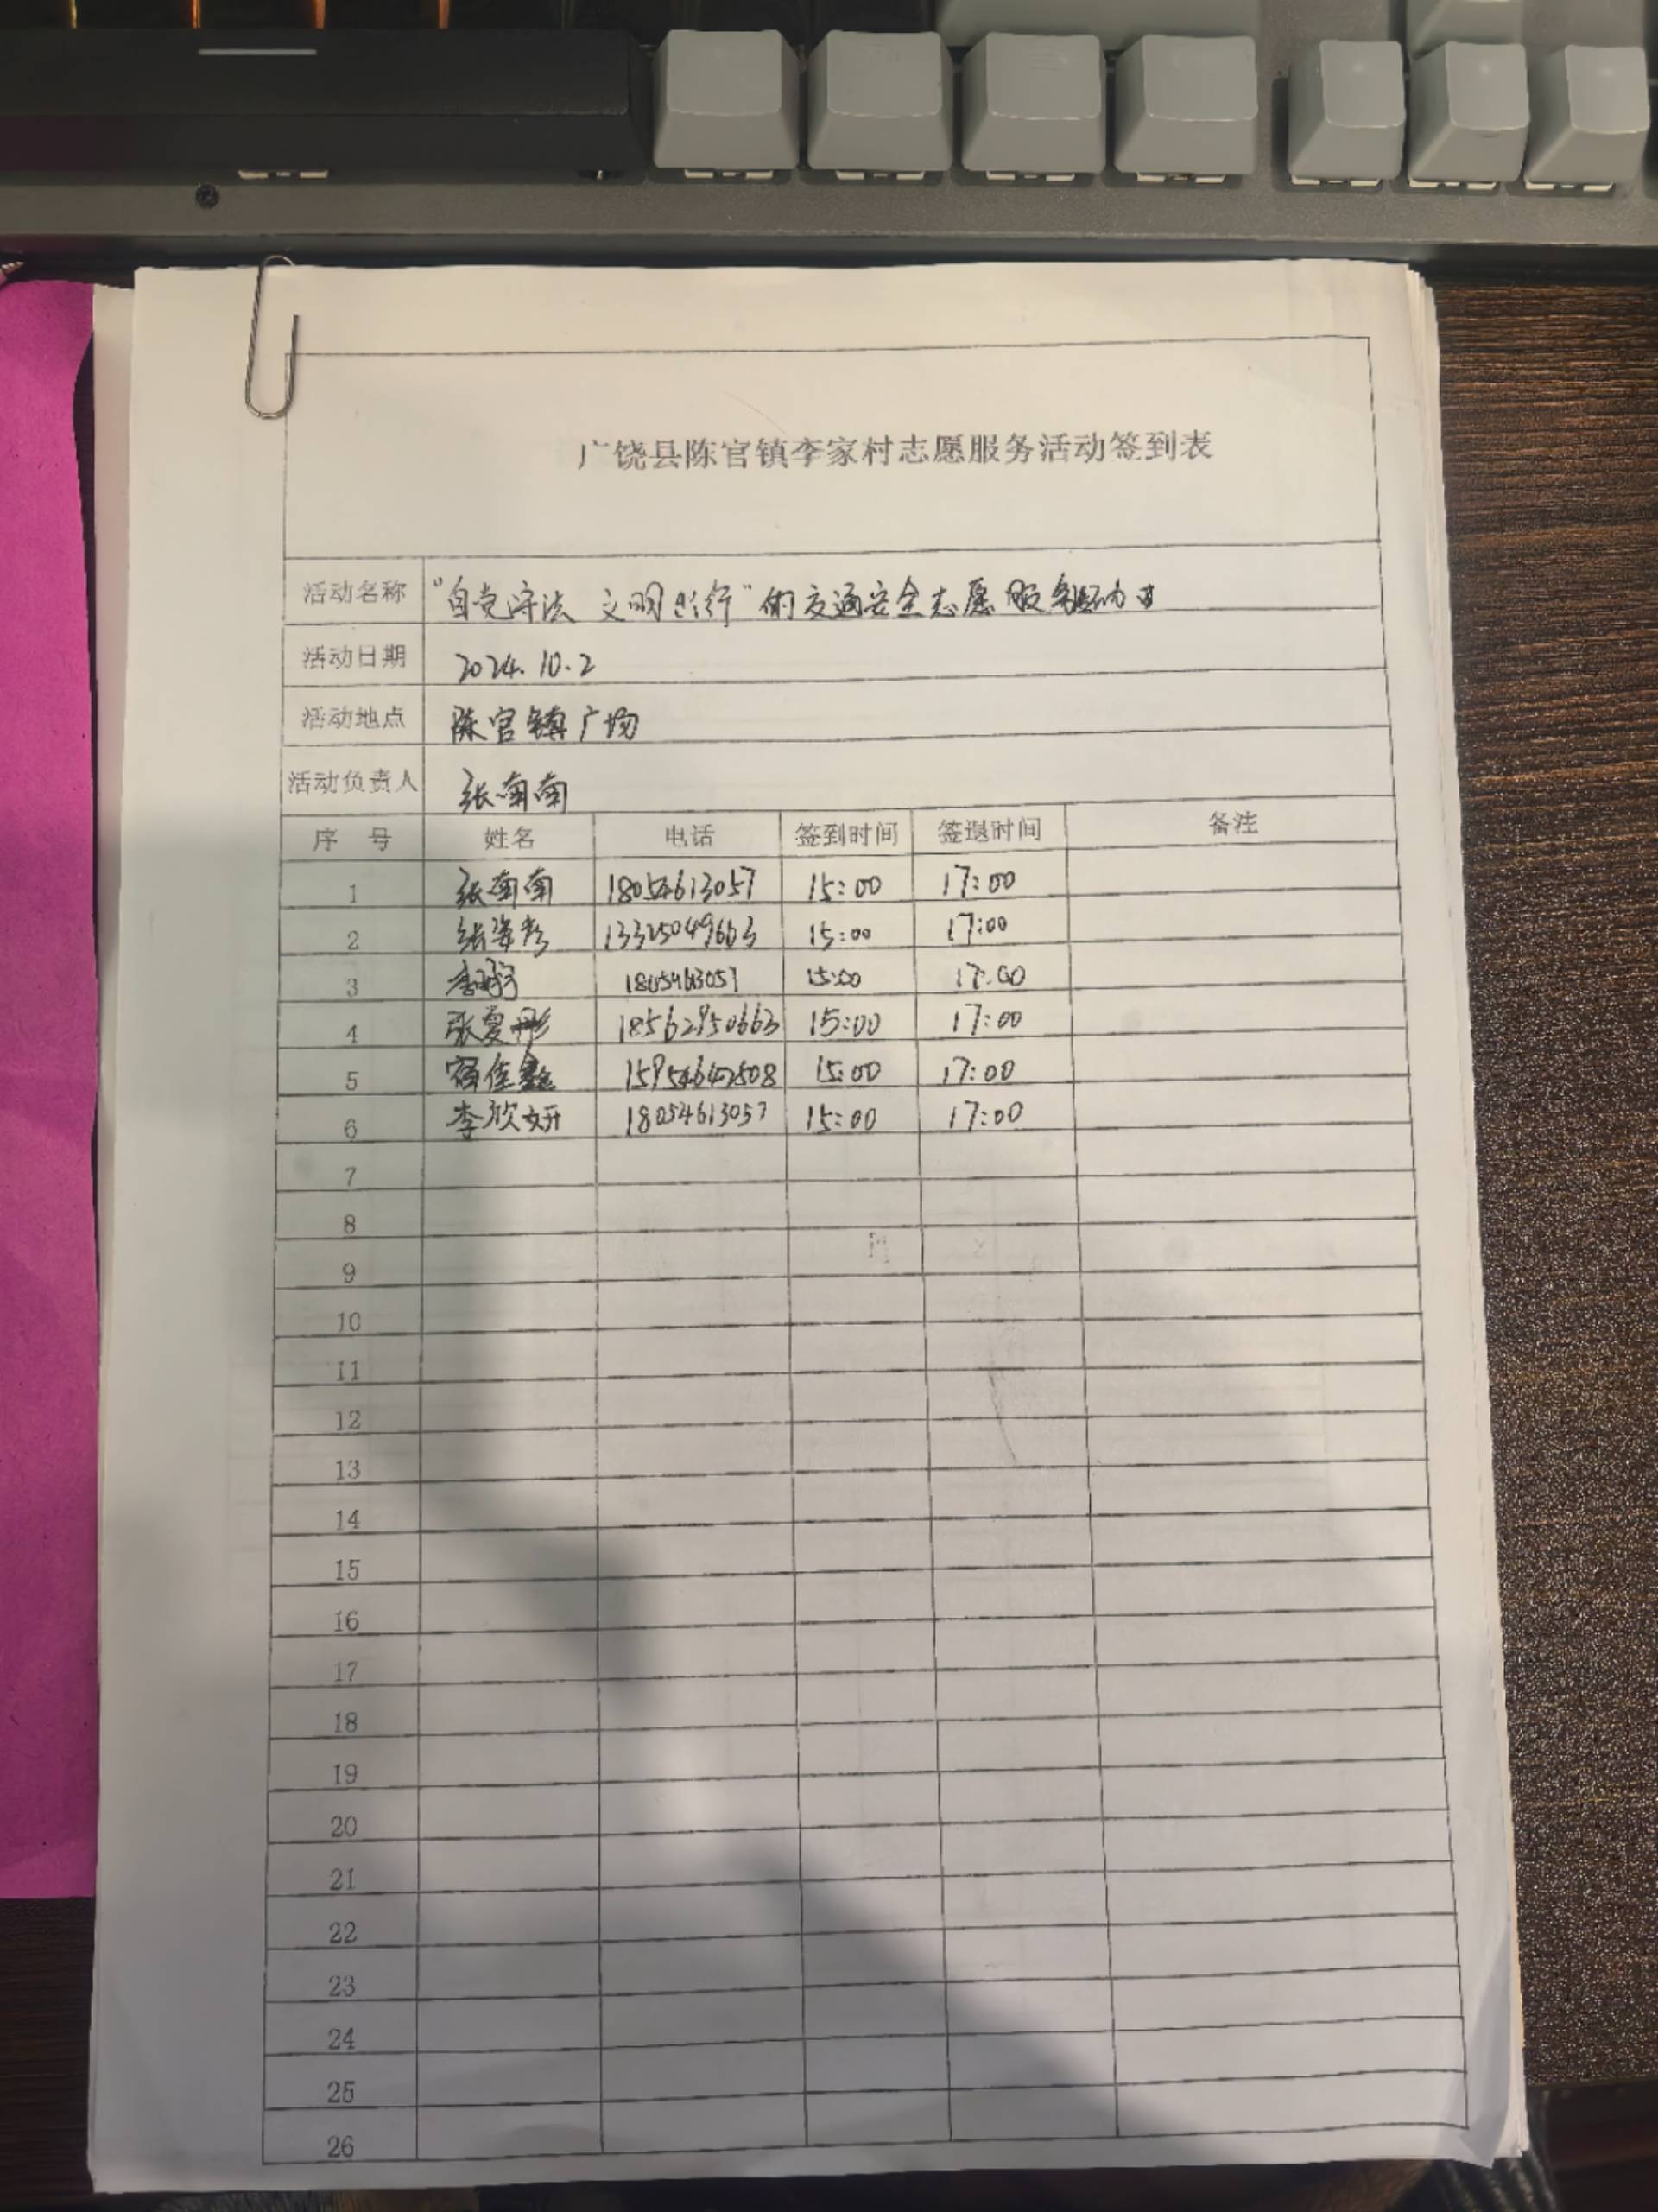 广饶县陈官镇李家村志愿服务活动签到表
活动名称 "自觉守法 文明出行"的交通安全志愿服务活动
活动日期 2024.10.2
活动地点 陈官镇广场
活动负责人 张南南
序 号 姓名 电话 签到时间 签退时间 备注
1 张南南 18054613057 15:00 17:00
2 张姿彤 13325049663 15:00 17:00
3 15:00 17:00
4 张夏彤 18562950663 15:00 17:00
5 佳鑫 15954642508 15:00 17:00
6 李欣妍 18054613057 15:00 17:00
7
8
9
10
11
12
13
14
15
16
17
18
19
20
21
22
23
24
25
26